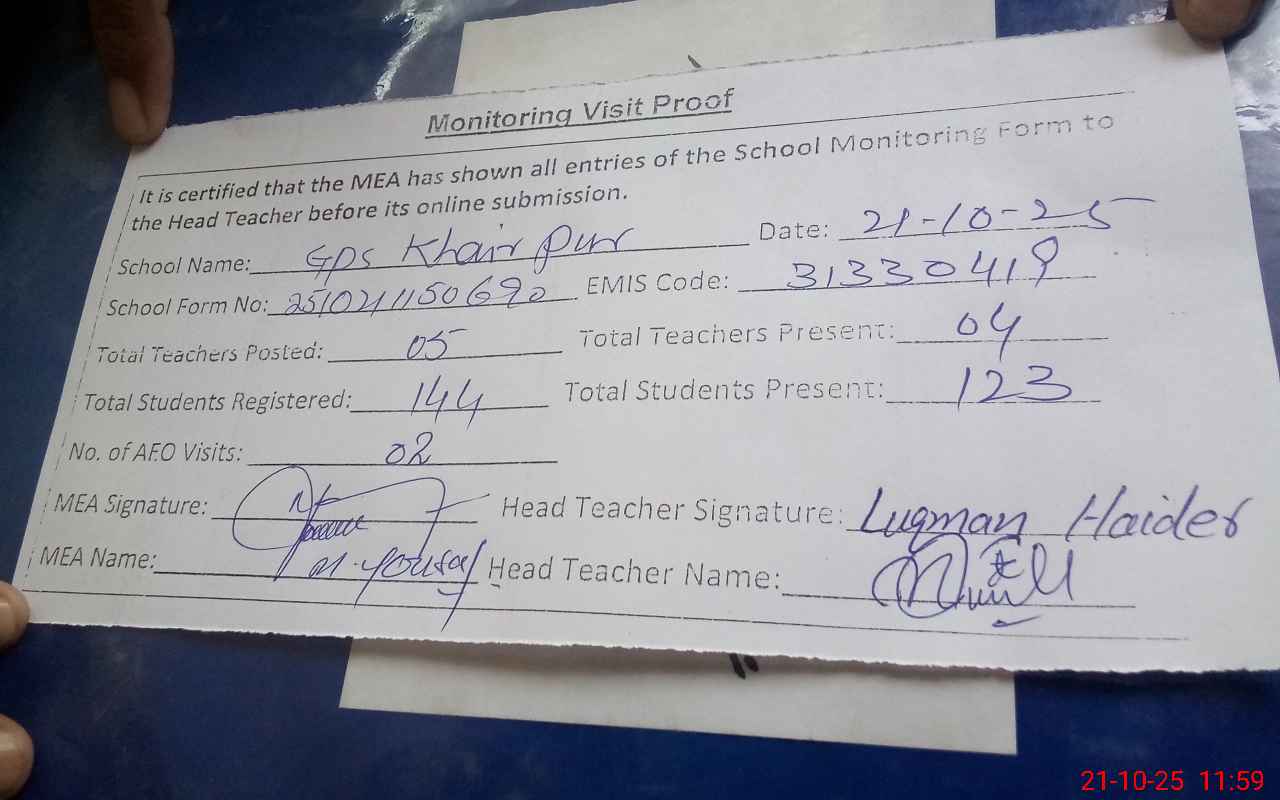 Monitoring Visit Proof
It is certified that the MEA has shown all entries of the School Monitoring Form to
the Head Teacher before its online submission.
School Name: GPS Khair pur Date: 21-10-25
School Form No: EMIS Code: 31330419
Total Teachers Posted: 05 Total Teachers Present: 04
Total Students Registered: 144 Total Students Present: 123
No. of AEO Visits: 02
MEA Signature: Head Teacher Signature: Luqman Haider
MEA Name: M. Yousaf Head Teacher Name:
21-10-25 11:59